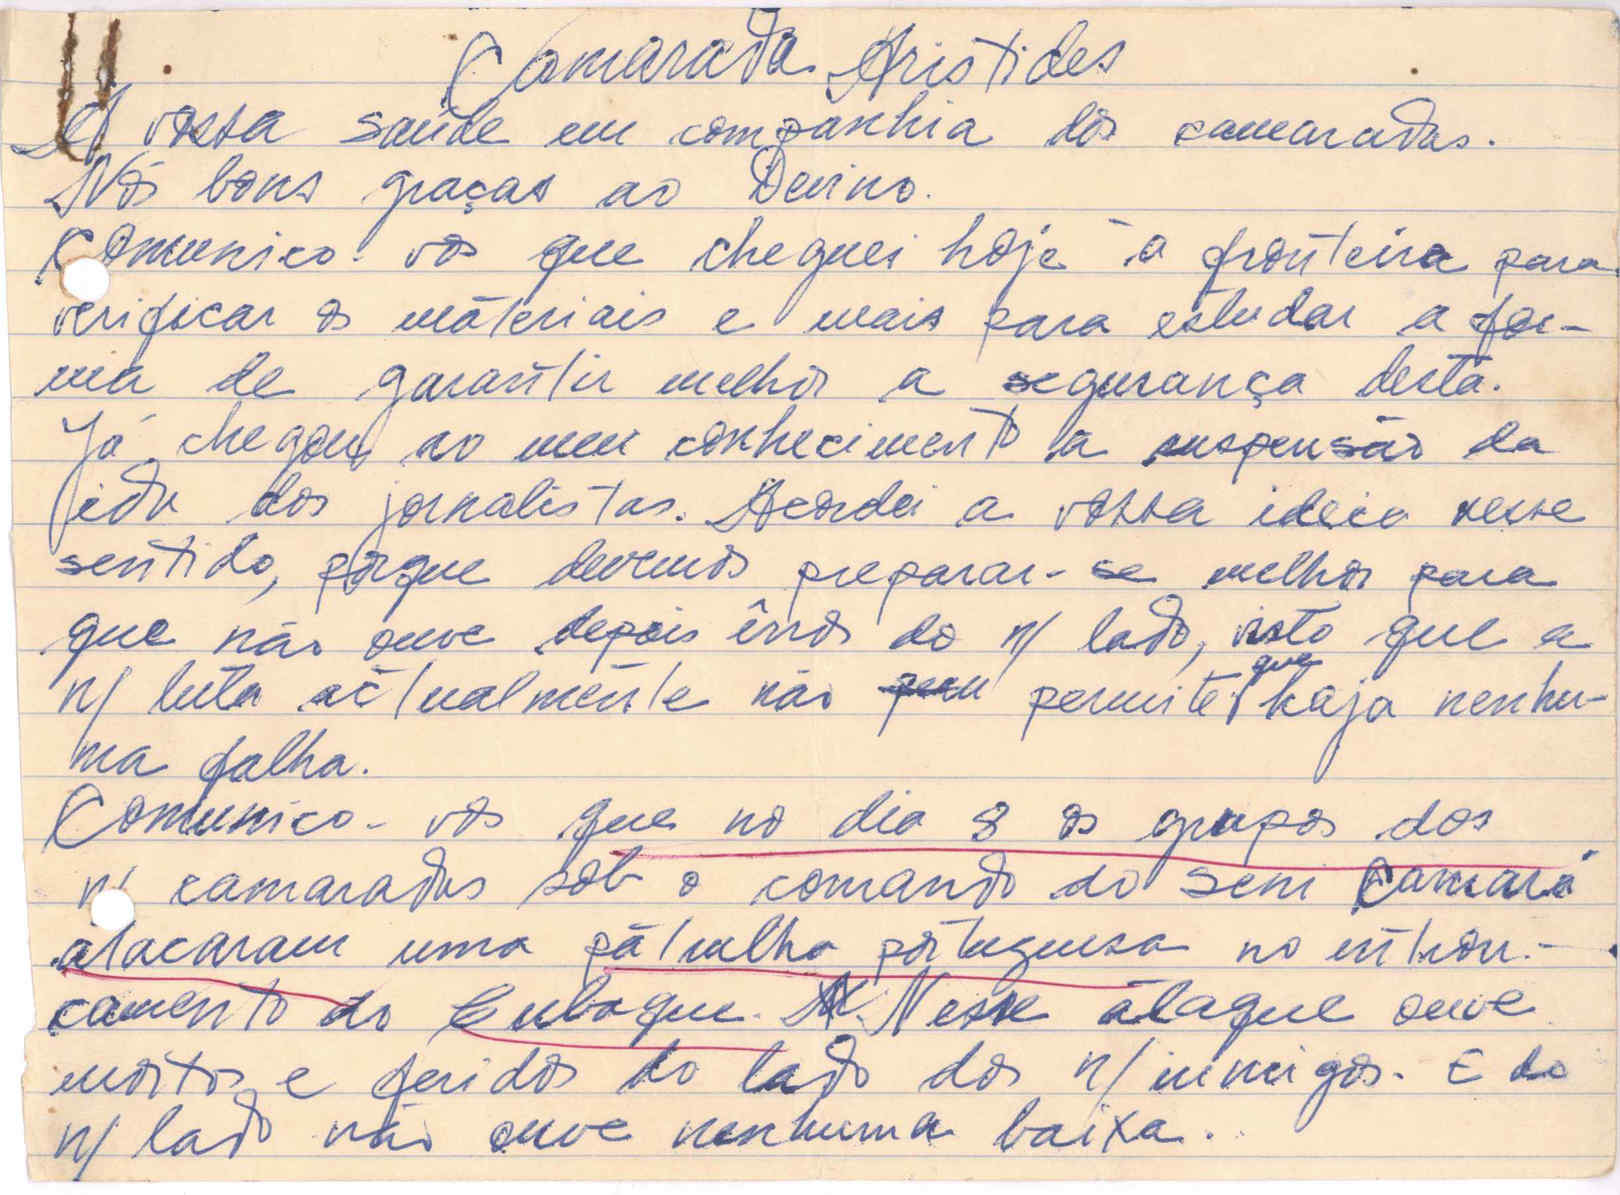 Camarada Aristides
A vossa saúde em companhia dos camaradas.
Nós bons graças ao Devino.
Comunico-vos que cheguei hoje à fronteira para
verificar os materiais e mais para estudar a for-
ma de garantir melhor a segurança desta.
Já chegou ao meu conhecimento a suspensão da
ida dos jornalistas. Acordei a vossa ideia nesse
sentido, porque devemos preparar-se melhor para
que não ouve depois êrros do n/ lado, visto que a
n/ luta actualmente não permite que haja nenhu-
ma falha.
Comunico-vos que no dia 8 os grupos dos
n/ camaradas sob o comando do Seni Camará
atacaram uma patrulha portuguesa no entron-
camento do . Nesse ataque ouve
mortos e feridos do lado dos n/ inimigos. E do
n/ lado não ouve nenhuma baixa.